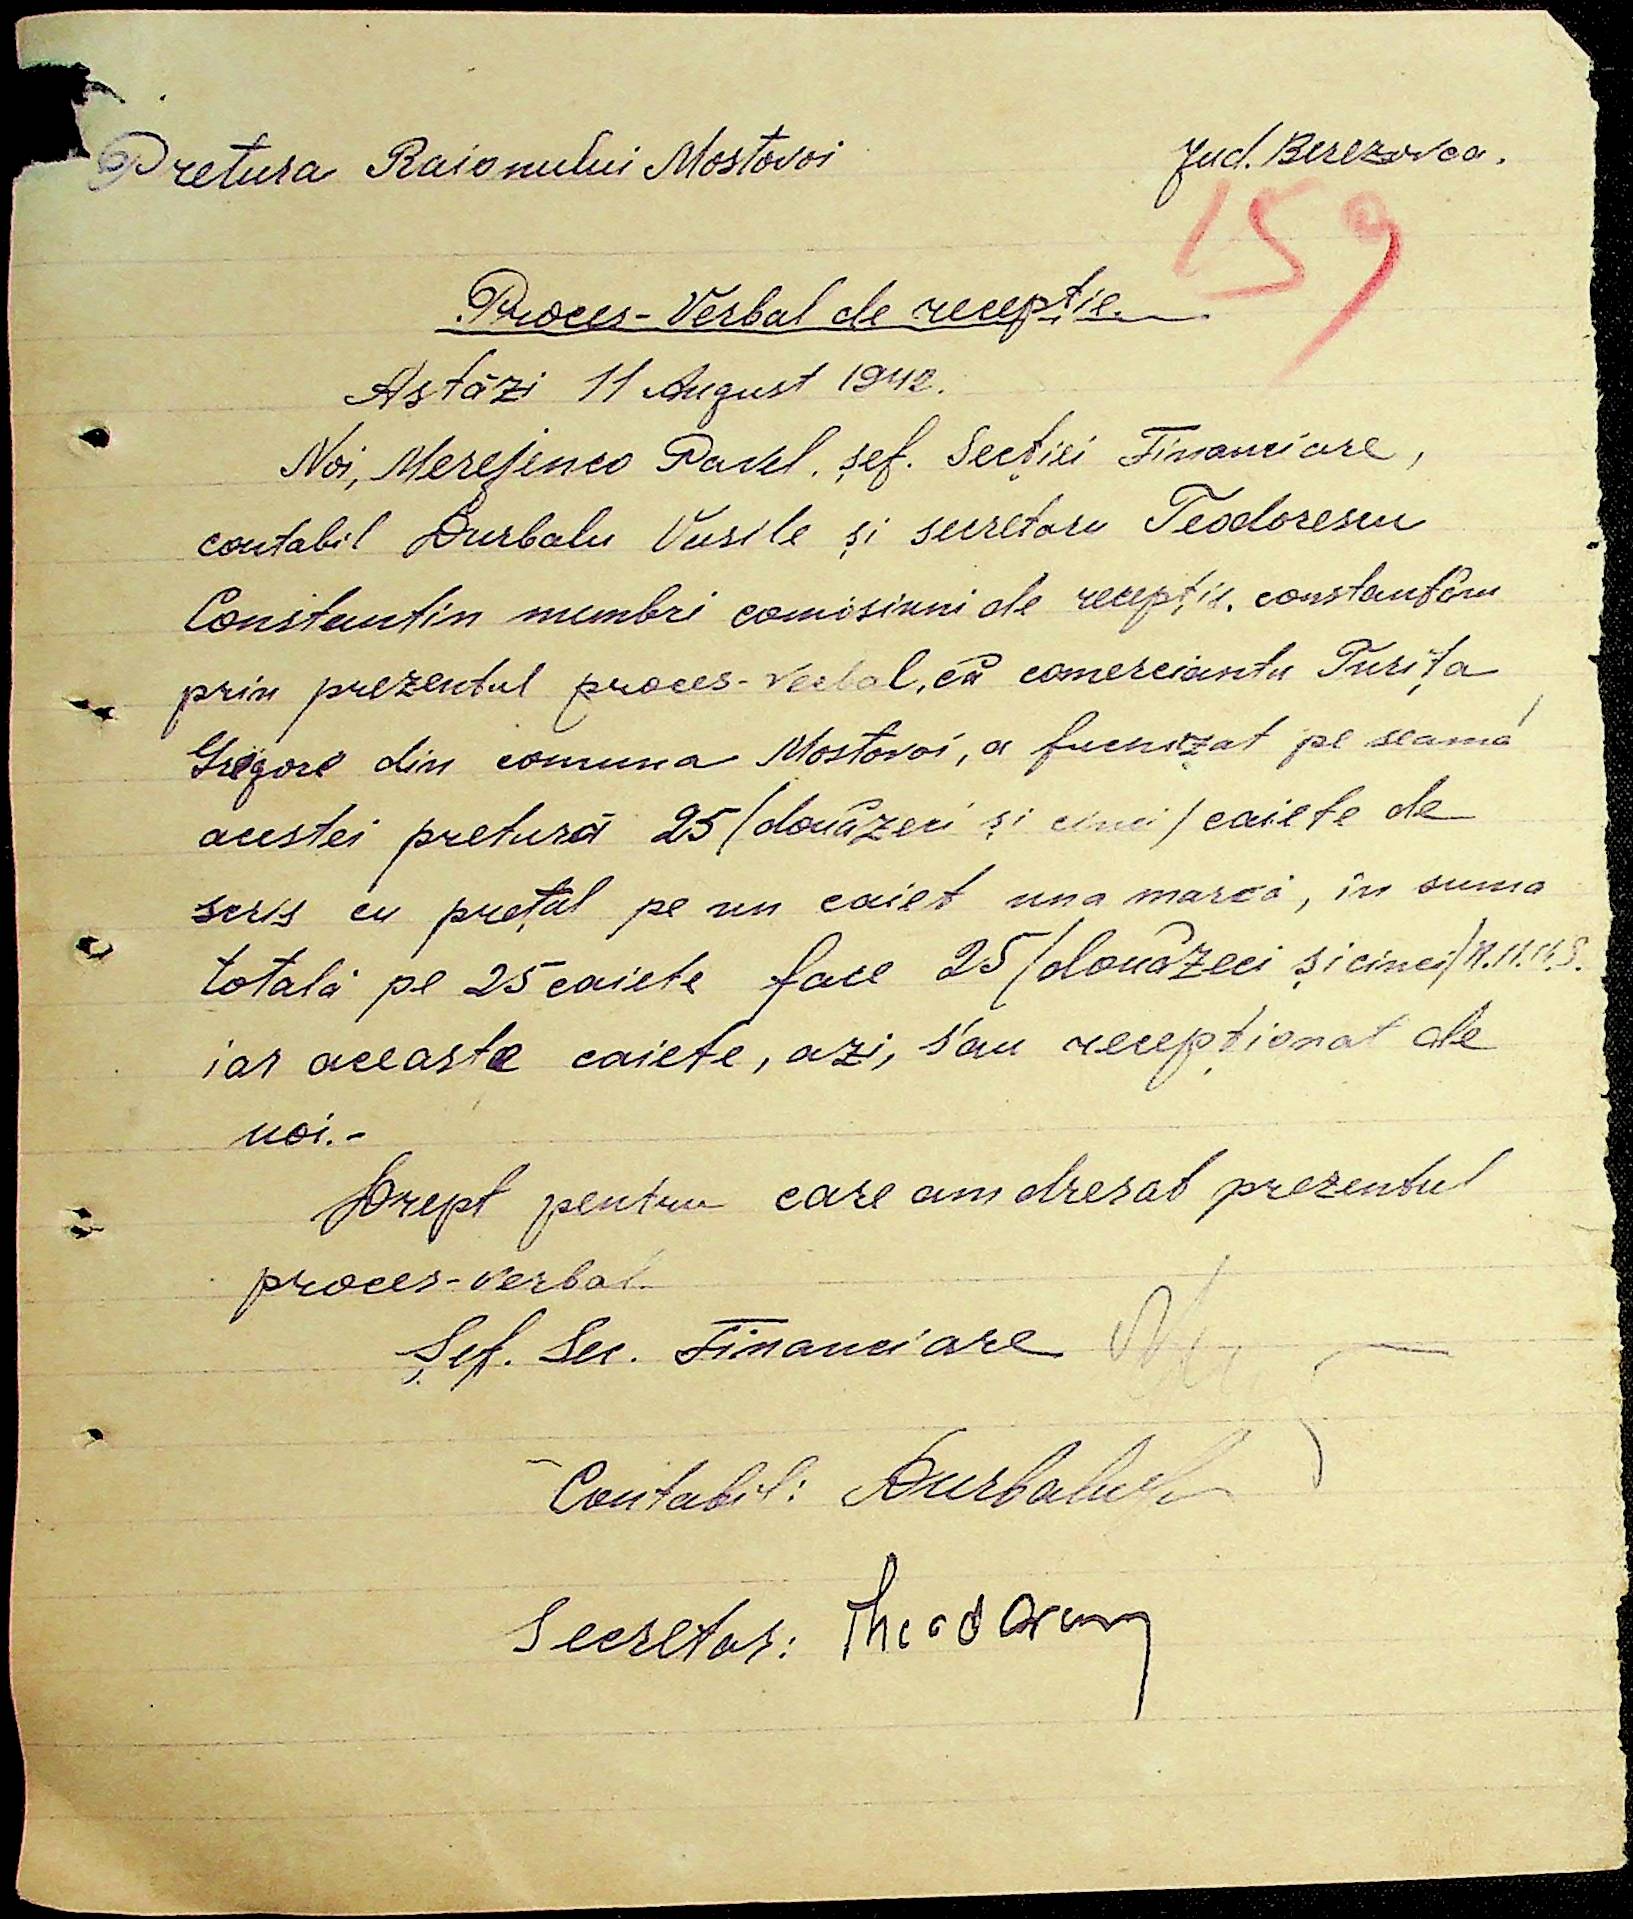 Pretura Raionului Mostovoi
Jud. Berezovca.
159
Proces-Verbal de recepție.
Astăzi 11 August 1942.
Noi, Merejenco Pavel, șef. Secției Financiare,
contabil Durbalu Vasile și secretaru Teodorescu
Constantin membri comisiuni de recepție, constantăm
prin prezentul proces-verbal, că comerciantu Turița
Gregore din comuna Mostovoi, a furnizat pe seama
acestei pretură 25 /douăzeci și cinci/ caiete de
scris cu prețul pe un caiet una marcă, în suma
totală pe 25 caiete face 25 /douăzeci și cinci/
iar aceaste caiete, azi, s'au recepționat de
noi.-
Drept pentru care am dresat prezentul
proces-verbal.
Șef. Sec. Financiare
Contabil: Durbalu
Secretar: